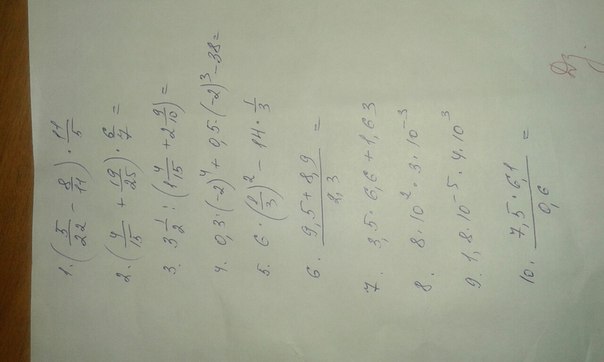 Дз.
1. (5/22 - 8/11) · 11/5
2. (4/15 + 19/25) · 6/7 =
3. 3 1/2 : (1 4/15 + 2 9/10) =
4. 0,3·(-2)⁴ + 0,5·(-2)³ - 38 =
5. 6·(1/3)² - 14·1/3
6. 9,5 + 8,9 / 2,3 =
7. 3,5·6,6 + 1,63
8. 8·10²·3·10⁻³
9. 1,8·10⁻⁵·4·10³
10. 7,5·6,1 / 0,6 =